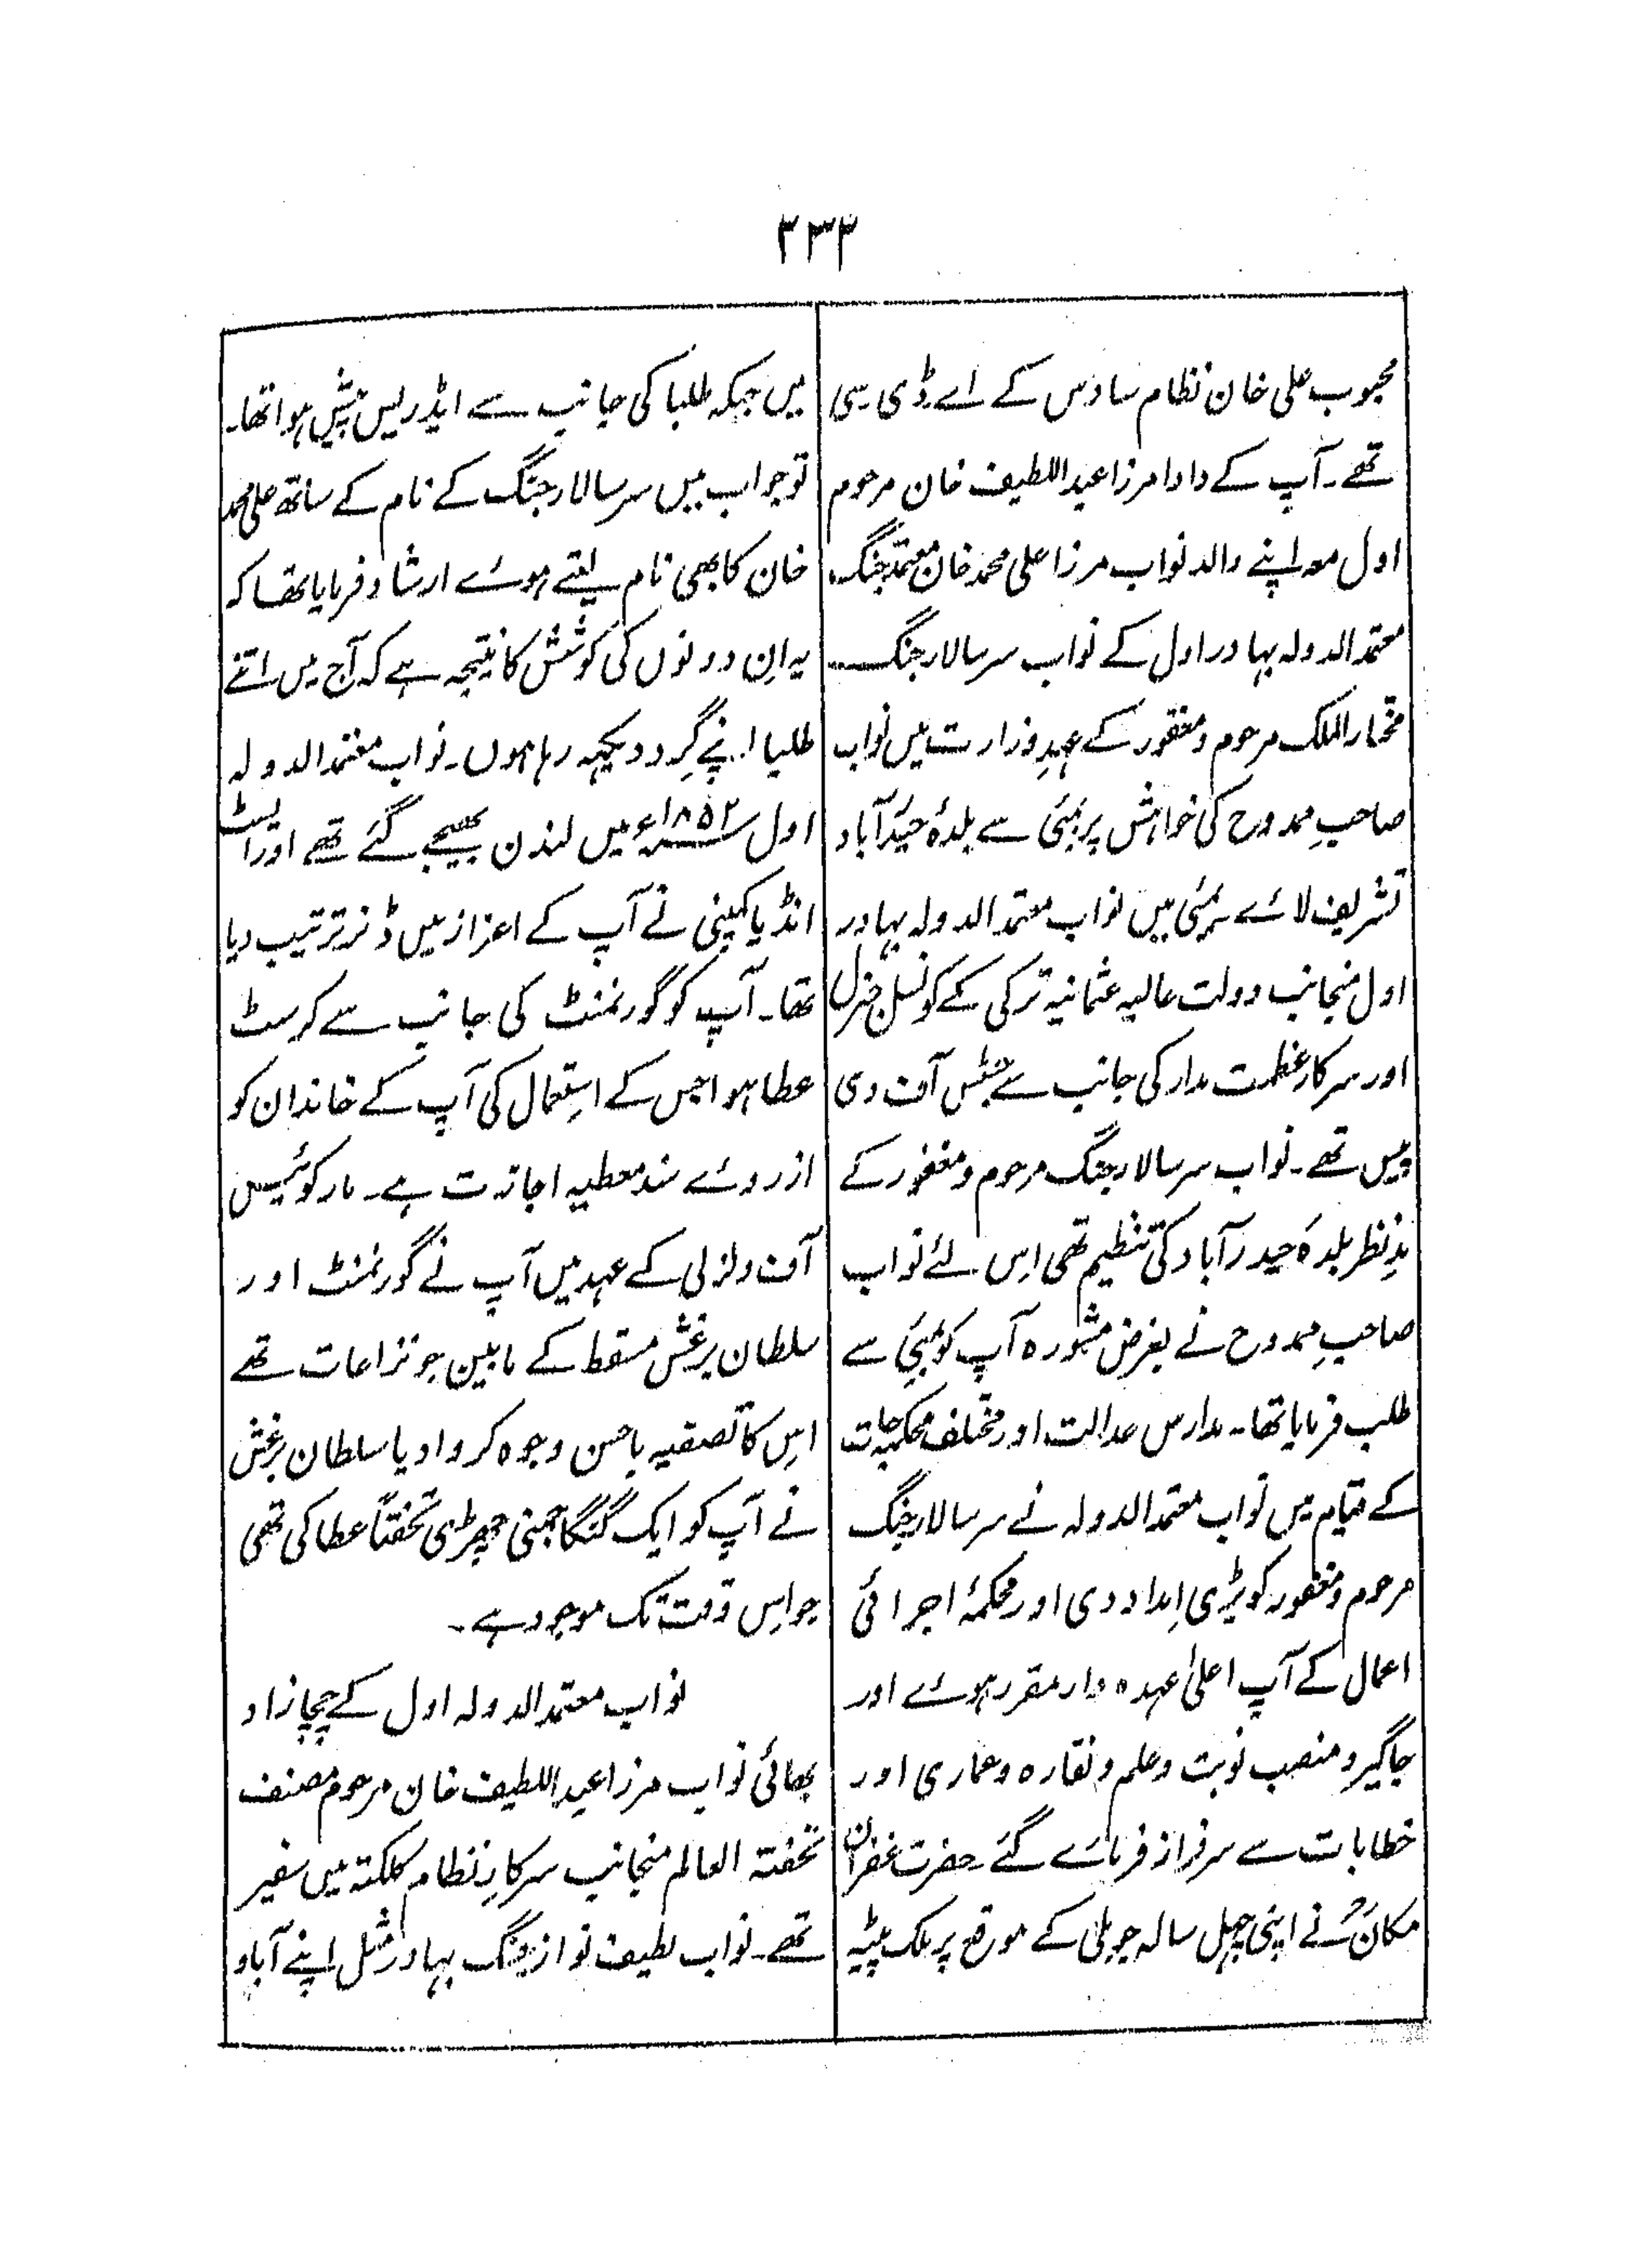 ۳۳۳
محبوب علی خان نظام سادس کے اے ڈی سی
تھے۔ آپ کے دادا مرزا عبداللطیف خان مرحوم
اول معہ اپنے والد نواب مرزا علی محمد خان معتمد جنگ
معتمد الدولہ بہادر اول کے نواب سر سالار جنگ
مختار الملک مرحوم و مغفور کے عہدِ وزارت میں نواب
صاحبِ ممدوح کی خواہش پر بمبئی سے بلدۂ حیدرآباد
تشریف لائے۔ بمبئی میں نواب معتمد الدولہ بہادر
اول منجانب دولت عالیہ عثمانیہ ترکی کے کونسل جنرل
اور سرکار عظمت مدار کی جانب سے جسٹس آف دی
پیس تھے۔ نواب سر سالار جنگ مرحوم و مغفور کے
مدِ نظر بلدۂ حیدرآباد کی تنظیم تھی اِس لئے نواب
صاحبِ ممدوح نے بغرض مشورہ آپ کو بمبئی سے
طلب فرمایا تھا۔ مدارس عدالت اور مختلف محکمہ جات
کے قیام میں نواب معتمد الدولہ نے سر سالار جنگ
مرحوم و مغفور کو بڑی اِمداد دی اور محکمۂ اجرائی
اعمال کے آپ اعلیٰ عہدہ دار مقرر ہوئے اور
جاگیر و منصب نوبت و علم و نقارہ و عماری اور
خطابات سے سرفراز فرمائے گئے۔ حضرت غفران
مکانؒ نے اپنی چہل سالہ جوبلی کے موقع پر ملک پیٹھ
میں جبکہ طلبا کی جانب سے ایڈریس پیش ہوا تھا۔
تو جواب میں سر سالار جنگ کے نام کے ساتھ علی محمد
خان کا بھی نام لیتے ہوئے ارشاد فرمایا تھا کہ
یہ اِن دونوں کی کوشش کا نتیجہ ہے کہ آج میں اتنے
طلبا اپنے گِرد دیکھہ رہا ہوں۔ نواب معتمد الدولہ
اول ۱۸۵۲ء میں لندن بھیجے گئے تھے اور ایسٹ
انڈیا کمپنی نے آپ کے اعزاز میں ڈنر ترتیب دیا
تھا۔ آپ کو گورنمنٹ کی جانب سے کرسٹ
عطا ہوا جس کے اِستعمال کی آپ کے خاندان کو
از روئے سند معطیہ اجازت ہے۔ مارکوئیس
آف ولزلی کے عہد میں آپ نے گورنمنٹ اور
سلطان برغش مسقط کے مابین جو نزاعات تھے
اِس کا تصفیہ باحسن وجوہ کروا دیا سلطان برغش
نے آپ کو ایک گنگا جمنی چھڑی تحفتاً عطا کی تھی
جو اِس وقت تک موجود ہے۔
نواب معتمد الدولہ اول کے چچا زاد
بھائی نواب مرزا عبداللطیف خان مرحوم مصنف
تحفتہ العالم منجانب سرکارِ نظام کلکتہ میں سفیر
تھے۔ نواب لطیف نواز جنگ بہادر مثل اپنے آباو